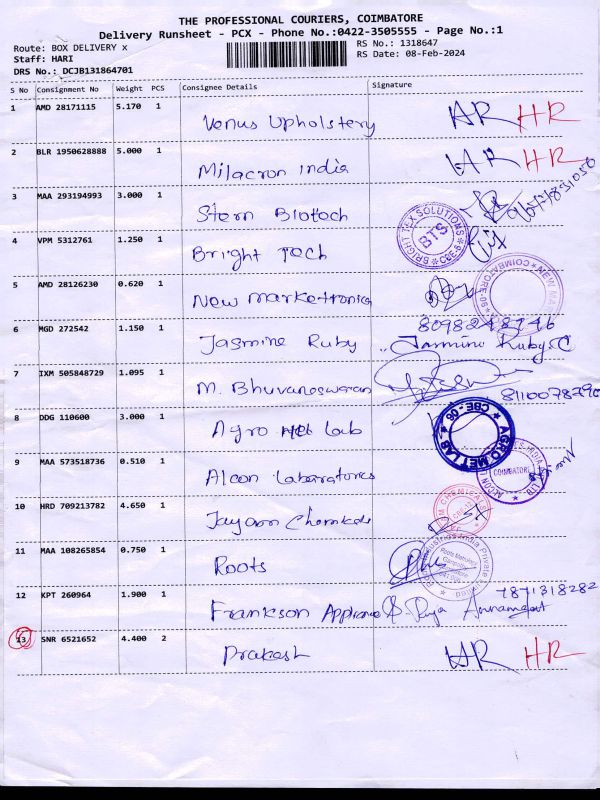 THE PROFESSIONAL COURIERS, COIMBATORE
Delivery Runsheet - PCX - Phone No.:0422-3505555 - Page No.:1
Route: BOX DELIVERY x
RS No.: 1318647
Staff: HARI
RS Date: 08-Feb-2024
DRS No.: DCJB131864701
S No Consignment No Weight PCS Consignee Details Signature
1 AMD 28171115 5.170 1 Venus Upholstery HR HR
2 BLR 1950628888 5.000 1 Milacron India HR HR
3 MAA 293194993 3.000 1 Stern Biotech
4 VPM 5312761 1.250 1 Bright Tech BRIGHT TEX SOLUTIONS BTS CBE-9
5 AMD 28126230 0.620 1 New marketronics COIMBATORE-09
6 MGD 272542 1.150 1 Jasmine Ruby 8098248746 Jasmine Ruby
7 IXM 505848729 1.095 1 M. Bhuvaneswaran
8 DDG 110600 3.000 1 Agro Met Lab AGRO MET LAB CBE-08
9 MAA 573518736 0.510 1 Alcon Laboratories COIMBATORE
10 HRD 709213782 4.650 1 Jayam Chemicals
11 MAA 108265854 0.750 1 Roots
12 KPT 260964 1.900 1 Frankson Appliance 7871318282
13 SNR 6521652 4.400 2 Prakash HR HR